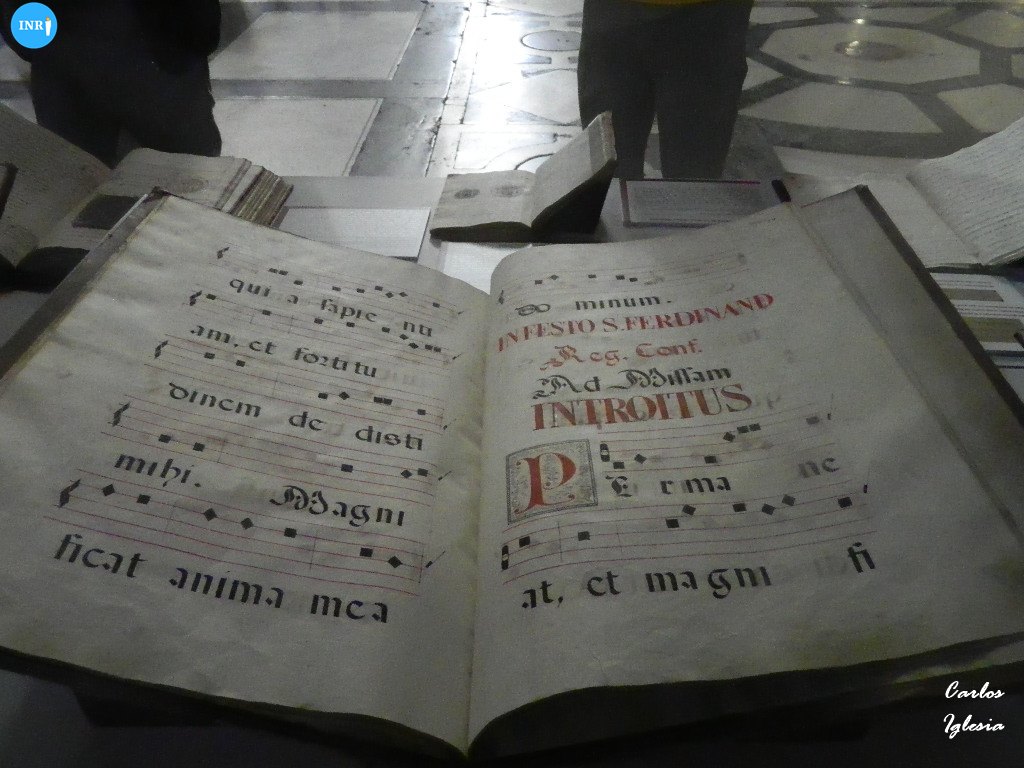 INRI
qui a sapie nti
am, et fortitu
dinem de disti
mihi. Magni
ficat anima mea
Do minum.
IN FESTO S. FERDINAND
Reg. Conf.
Ad Missam
INTROITUS
PErma ne
at, et magni fi
Carlos
Iglesia